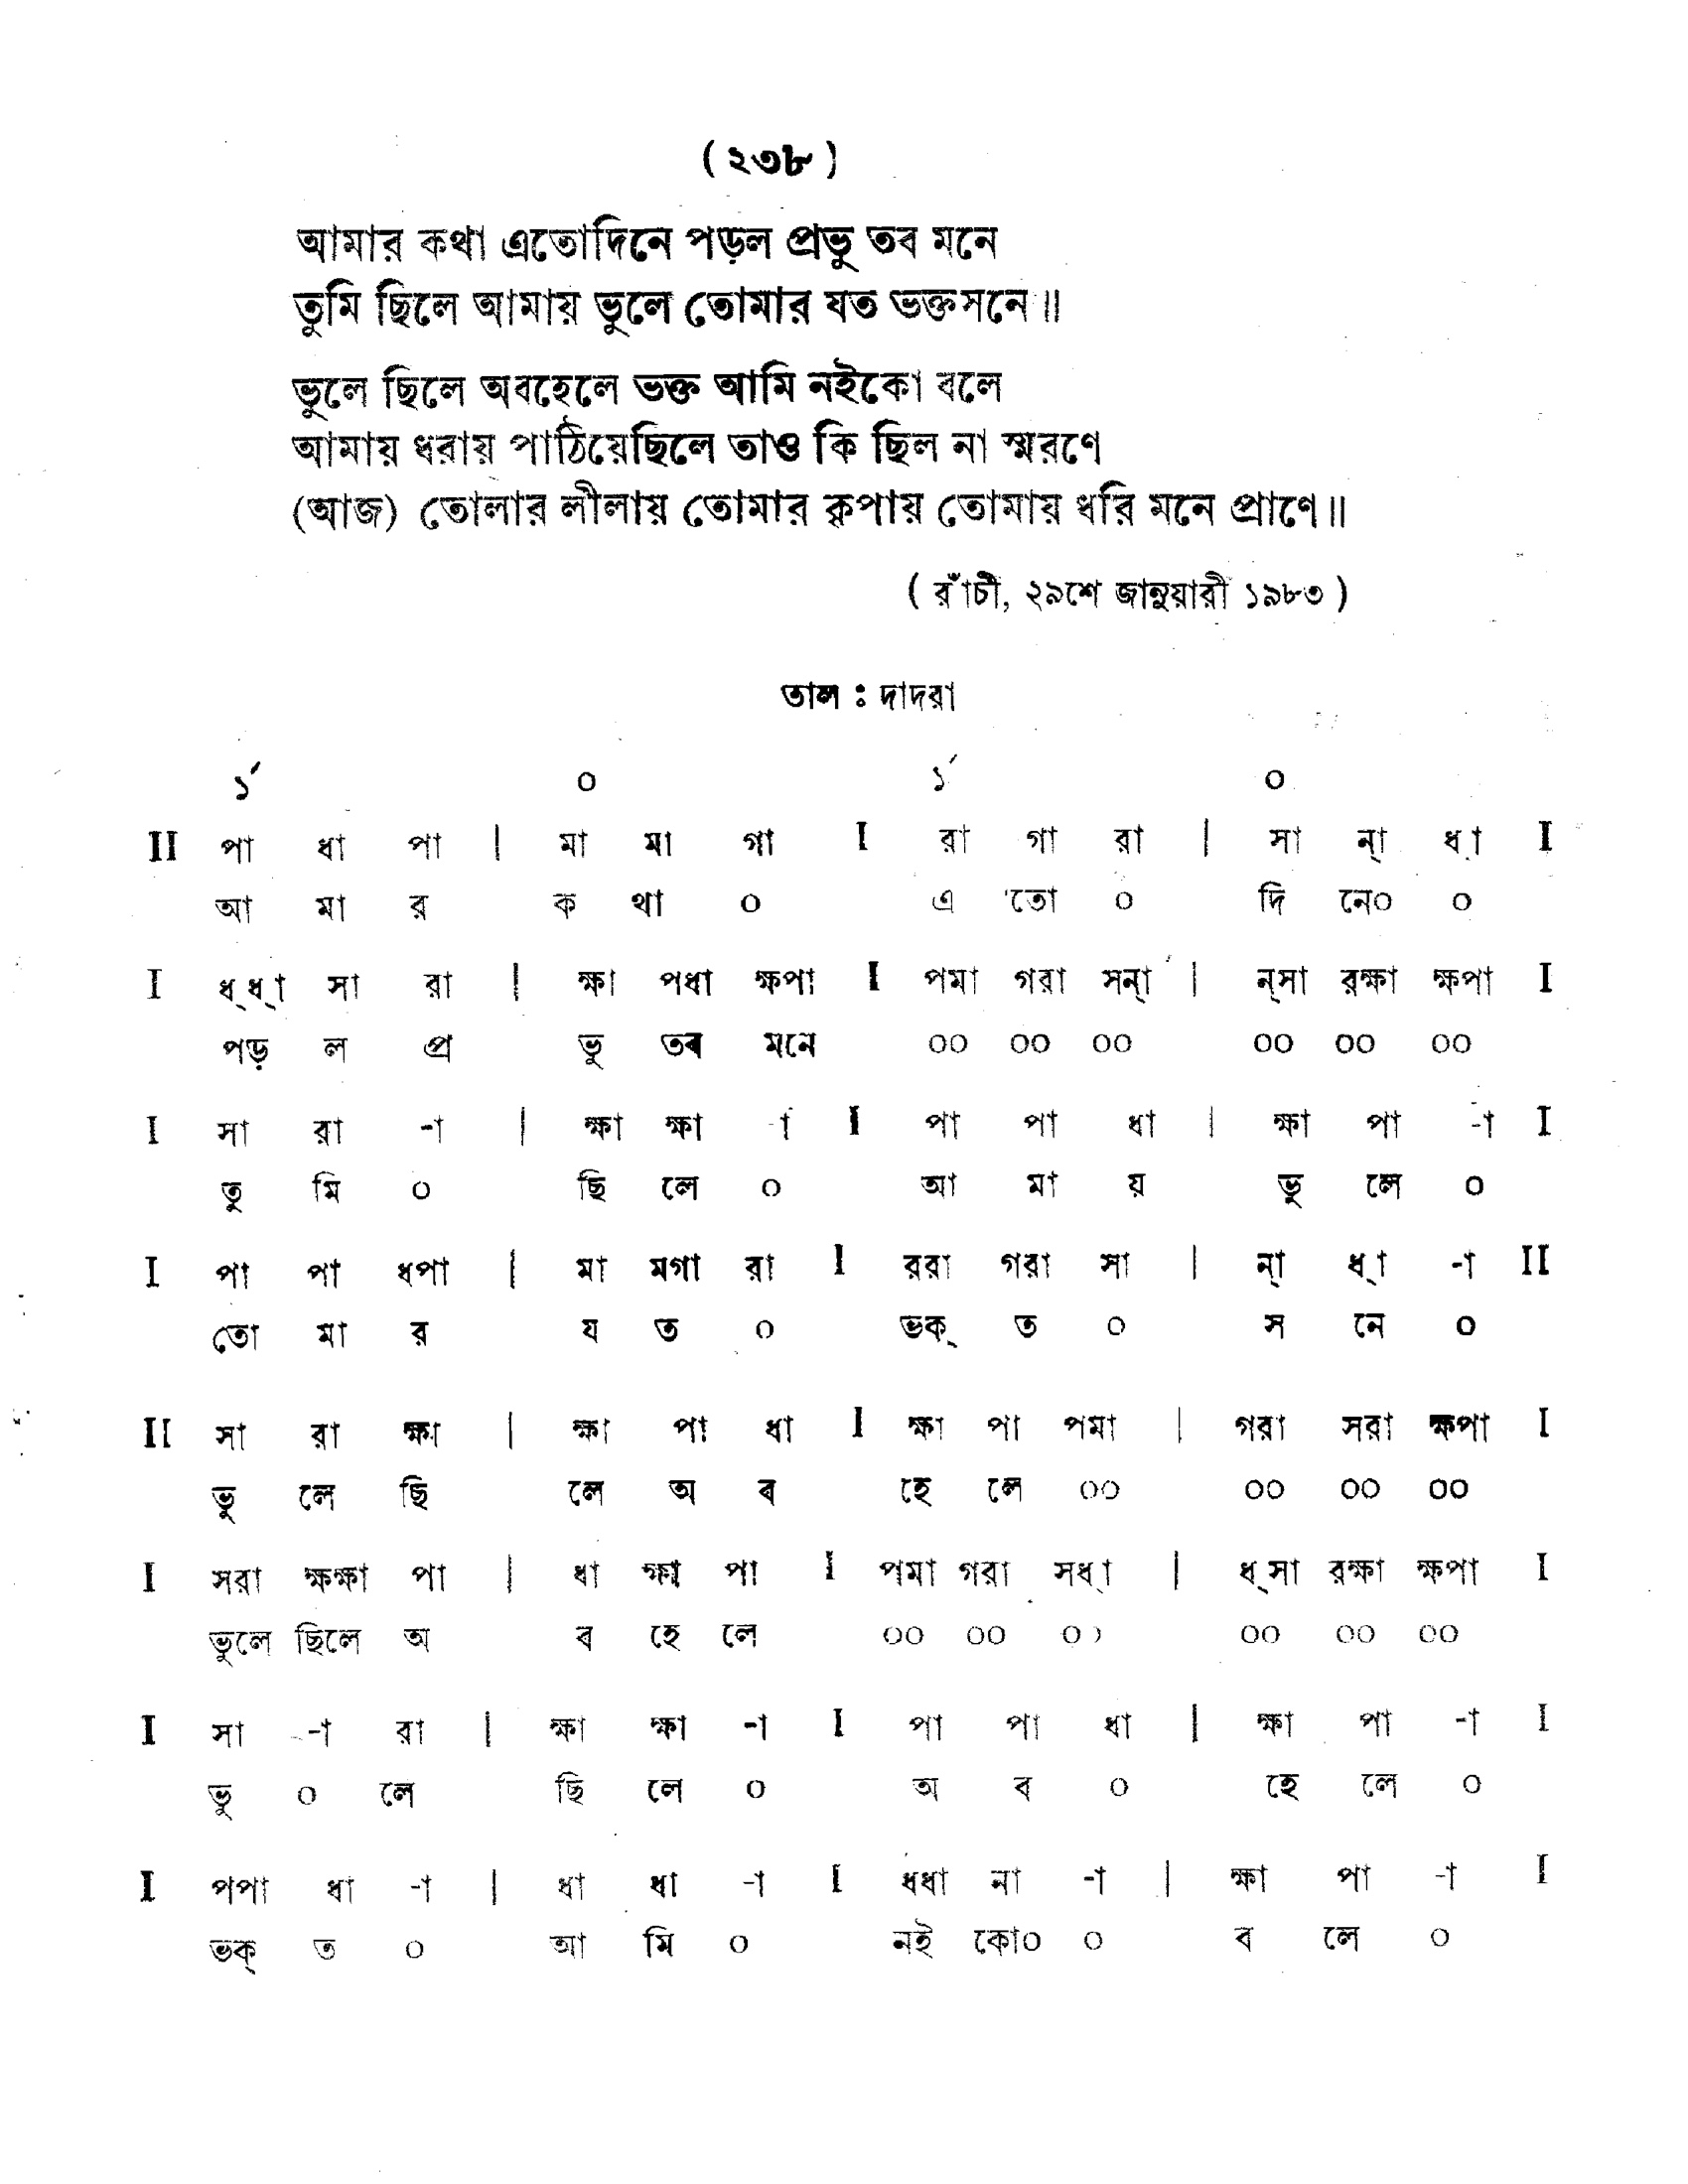 (২৩৮)
আমার কথা এতোদিনে পড়ল প্রভু তব মনে
তুমি ছিলে আমায় ভুলে তোমার যত ভক্তসনে॥
ভুলে ছিলে অবহেলে ভক্ত আমি নইকো বলে
আমায় ধরায় পাঠিয়েছিলে তাও কি ছিল না স্মরণে
(আজ) তোলার লীলায় তোমার কৃপায় তোমায় ধরি মনে প্রাণে॥
( রাঁচী, ২৯শে জানুয়ারী ১৯৮৩ )
তাল : দাদরা
১´ ০ ১´ ০
II পা ধা পা | মা মা গা I রা গা রা | সা ন্‌া ধ্‌া I
আ মা র ক থা ০ এ তো ০ দি নে০ ০
I ধ্‌ধ্‌া সা রা | ক্ষা পধা ক্ষপা I পমা গরা সন্‌া | ন্‌সা রক্ষা ক্ষপা I
পড় ল প্র ভু তব মনে ০০ ০০ ০০ ০০ ০০ ০০
I সা রা -া | ক্ষা ক্ষা -া I পা পা ধা | ক্ষা পা -া I
তু মি ০ ছি লে ০ আ মা য় ভু লে ০
I পা পা ধপা | মা মগা রা I ররা গরা সা | ন্‌া ধ্‌া -া II
তো মা র য ত ০ ভক্‌ ত ০ স নে ০
II সা রা ক্ষা | ক্ষা পা ধা I ক্ষা পা পমা | গরা সরা ক্ষপা I
ভু লে ছি লে অ ব হে লে ০০ ০০ ০০ ০০
I সরা ক্ষক্ষা পা | ধা ক্ষা পা I পমা গরা সধ্‌া | ধ্‌সা রক্ষা ক্ষপা I
ভুলে ছিলে অ ব হে লে ০০ ০০ ০০ ০০ ০০ ০০
I সা -া রা | ক্ষা ক্ষা -া I পা পা ধা | ক্ষা পা -া I
ভু ০ লে ছি লে ০ অ ব ০ হে লে ০
I পপা ধা -া | ধা ধা -া I ধধা না -া | ক্ষা পা -া I
ভক্‌ ত ০ আ মি ০ নই কো০ ০ ব লে ০